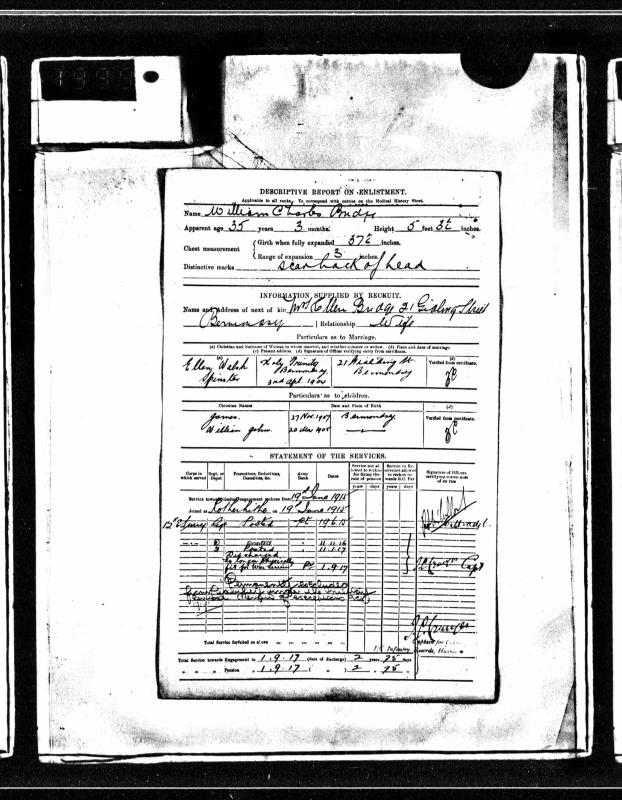 1999
DESCRIPTIVE REPORT ON ENLISTMENT.
Applicable to all ranks. To correspond with entries on the Medical History Sheet.
Name William Charles Bridge
Apparent age 35 years 3 months. Height 5 feet 3½ inches.
Chest measurement { Girth when fully expanded 37½ inches.
Range of expansion 3 inches.
Distinctive marks scar back of head
INFORMATION SUPPLIED BY RECRUIT.
Name and Address of next of kin Mrs Ellen Bridge 21 Street
| Relationship Wife
Particulars as to Marriage.
(a) Christian and Surname of Woman to whom married, and whether spinster or widow. (b) Place and date of marriage.
(c) Present address. (d) Signature of Officer verifying entry from certificate.
(a) (b) (c) (d)
Ellen Walsh Holy Trinity 21 St Verified from certificate.
Spinster Bermondsey Bermondsey
2nd Apl 190
Particulars as to children.
Christian Names Date and Place of Birth (d)
James 27 Nov. 1907 Bermondsey Verified from certificate.
William John
STATEMENT OF THE SERVICES.
Corps in which served Regt. or Depot Promotions, Reductions, Casualties, &c. Army Rank Dates Service not allowed to reckon for fixing the rate of pension Service in Reserve not allowed to reckon towards G.C. Pay Signature of Officers certifying correctness of entries
years days years days
Service towards limited engagement reckons from 19th June 1915
Joined at Rotherhithe on 19th June 1915
12th E Surrey Posted Pte 19.6.15
Posted 11.11.16
Posted 11.1.17
Discharged
no longer physically
fit for War Service Pte 1.9.17 Capt
Permanently excluded
from liability under the military
service (Review of Exceptions Act)
Total Service forfeited as above
Infantry Records,
Total Service towards Engagement to 1.9.17 (date of discharge) 2 years 75 days
" " " Pension 1.9.17 ( " ) 2 " 75 "